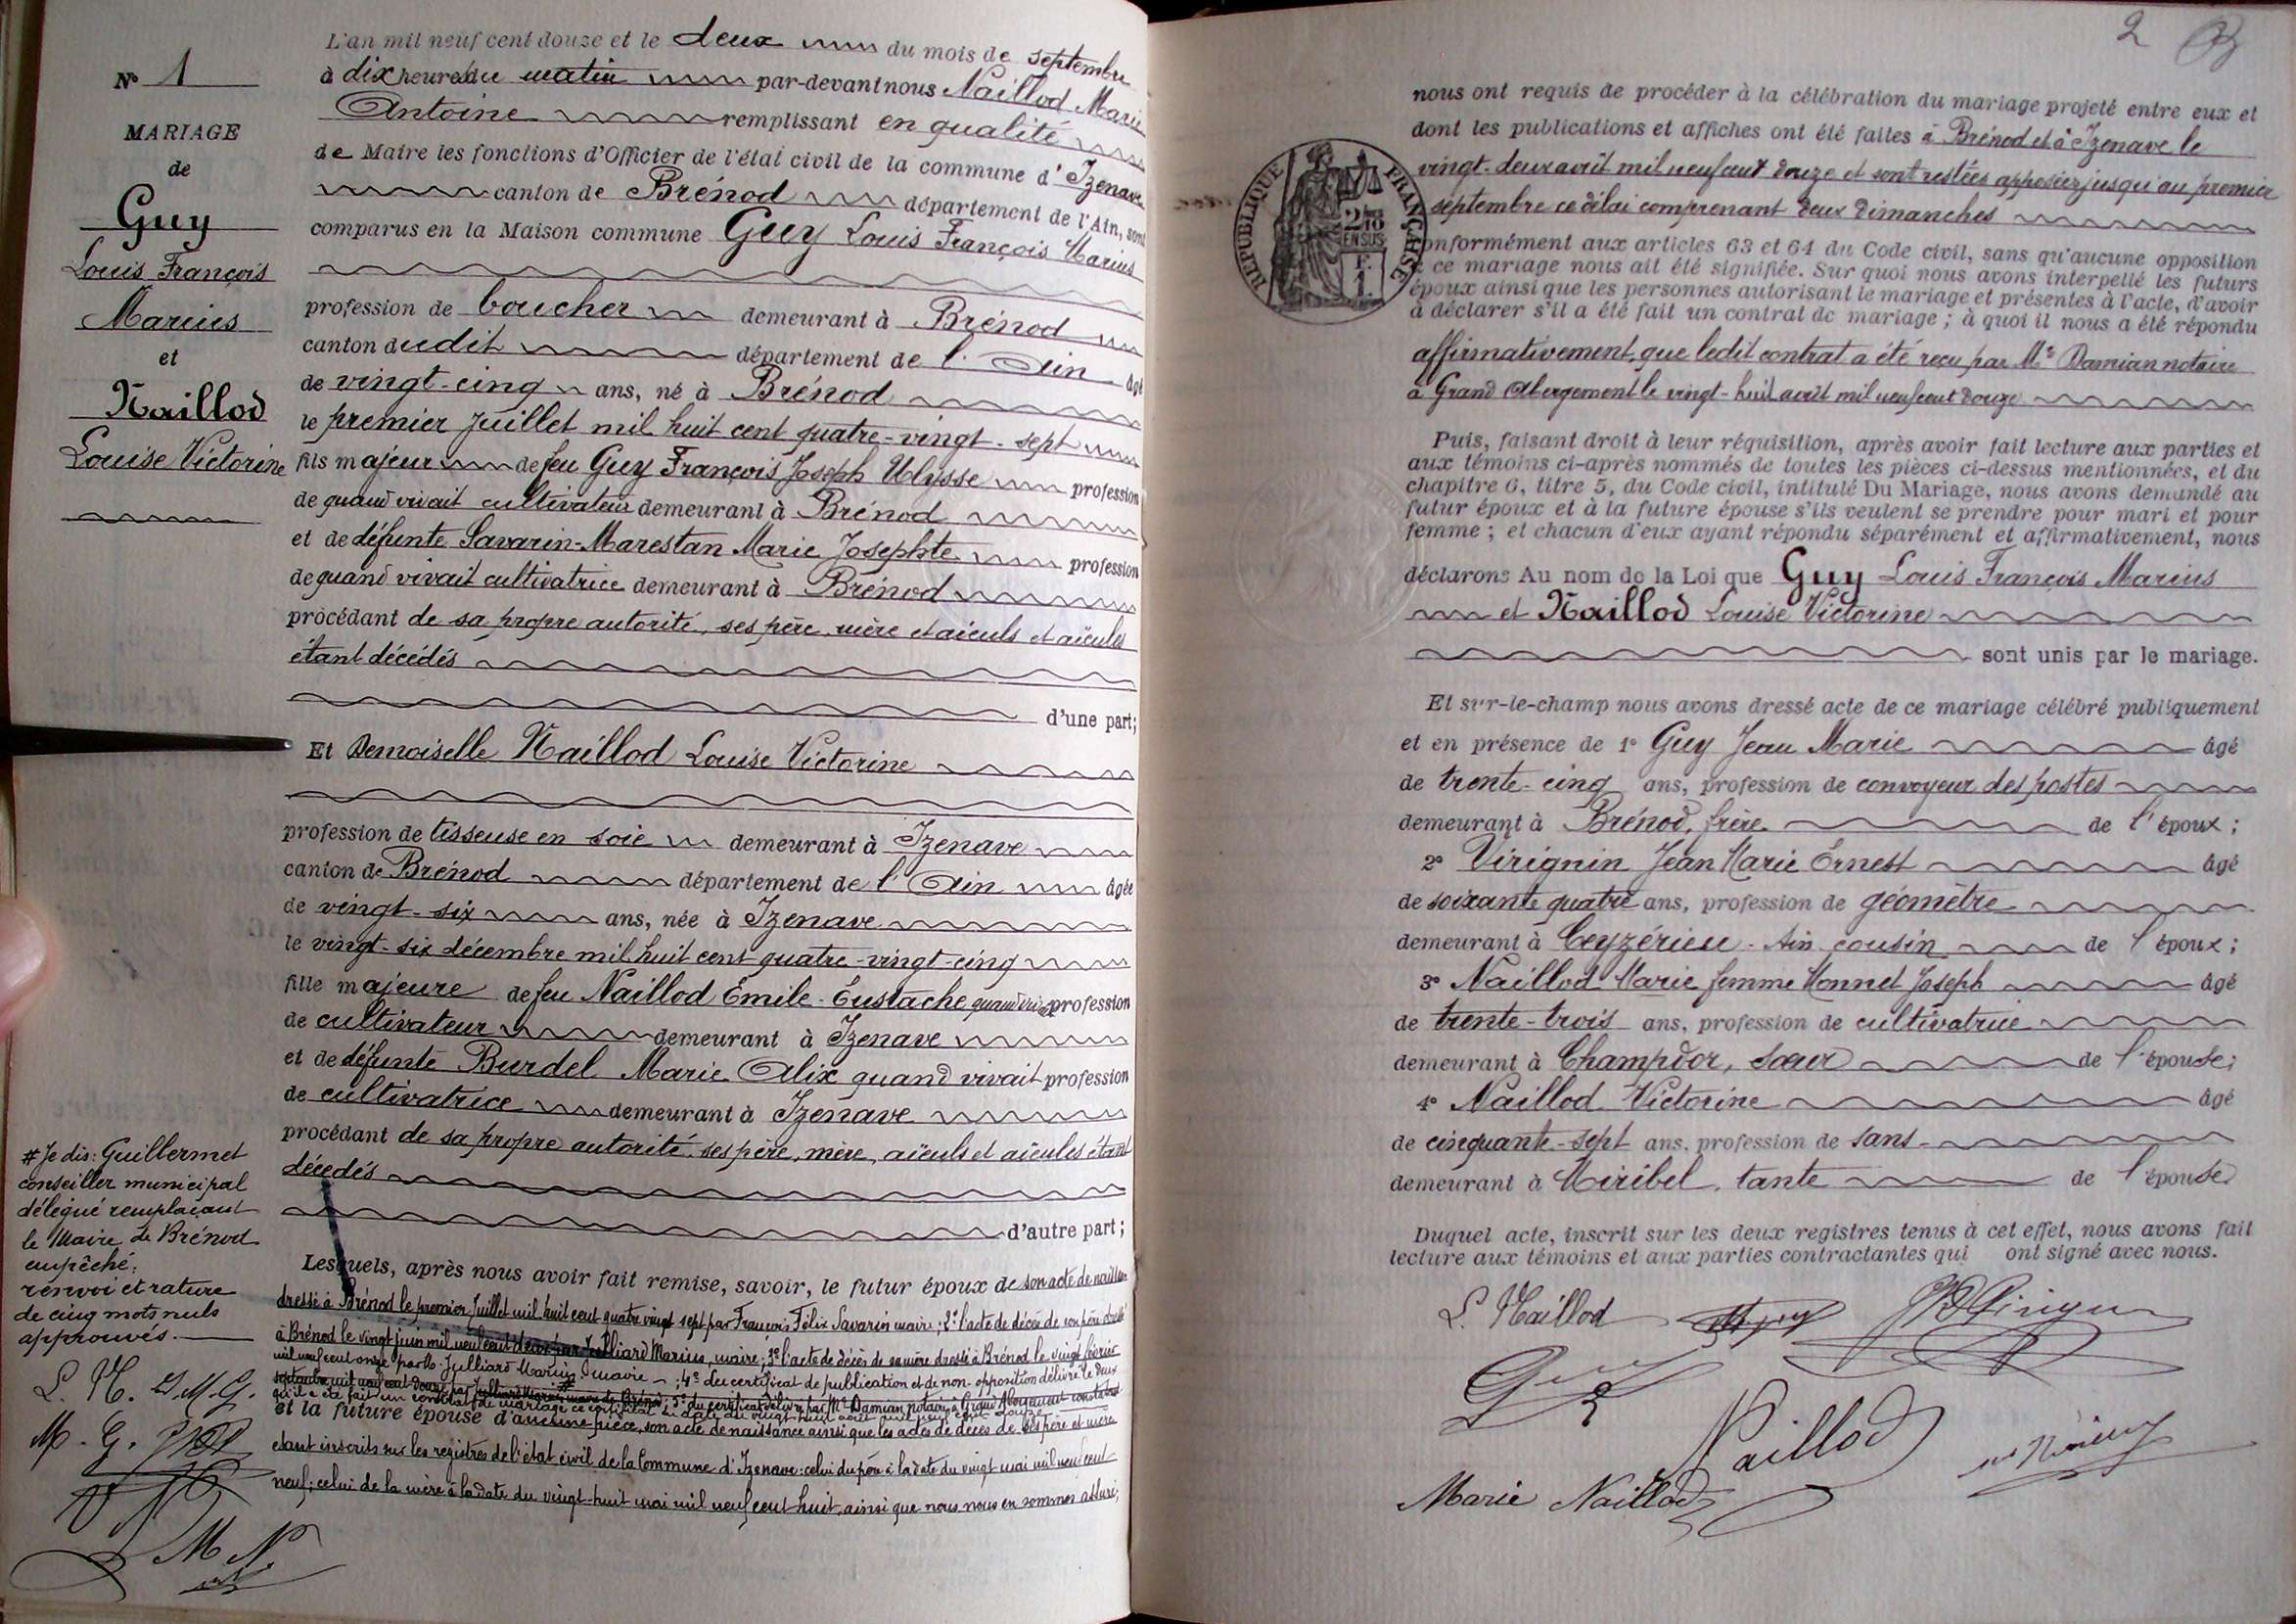 N° 1
MARIAGE
de
Guy
Louis François
Marius
et
Naillod
Louise Victorine
L'an mil neuf cent douze et le deux du mois de septembre
à dix heures du matin par-devant nous Naillod Marie
Antoine remplissant en qualité
de Maire les fonctions d'Officier de l'état civil de la commune d'Izenave
canton de Brénod département de l'Ain, sont
comparus en la Maison commune Guy Louis François Marius
profession de boucher demeurant à Brénod
canton dudit département de l'Ain âgé
de vingt-cinq ans, né à Brénod
le premier Juillet mil huit cent quatre-vingt-sept
fils majeur de feu Guy François Joseph Ulysse profession
de quand vivait cultivateur demeurant à Brénod
et de défunte Savarin-Marestan Marie Josephte profession
de quand vivait cultivatrice demeurant à Brénod
procédant de sa propre autorité, ses père, mère et aïeuls et aïeules
étant décédés
d'une part;
Et Demoiselle Naillod Louise Victorine
profession de tisseuse en soie demeurant à Izenave
canton de Brénod département de l'Ain âgée
de vingt-six ans, née à Izenave
le vingt-six décembre mil huit cent quatre-vingt-cinq
fille majeure de feu Naillod Émile-Eustache quand vivait profession
de cultivateur demeurant à Izenave
et de défunte Burdel Marie Alix quand vivait profession
de cultivatrice demeurant à Izenave
procédant de sa propre autorité, ses père, mère, aïeuls et aïeules étant
décédés
d'autre part;
Lesquels, après nous avoir fait remise, savoir, le futur époux de son acte de naissance
dressé à Brénod le premier Juillet mil huit cent quatre vingt sept par François Félix Savarin maire; 2° l'acte de décès de son père dressé
à Brénod le vingt juin mil neuf cent deux par Julliard Marius, maire; 3° l'acte de décès de sa mère dressé à Brénod le vingt février
mil neuf cent onze par Mr Julliard Marius maire; 4° du certificat de publication et de non-opposition délivré le deux
septembre mil neuf cent douze par Julliard Marius maire de Brénod; 5° du certificat délivré par Me Damian notaire à Grand Abergement constatant
qu'il a été fait un contrat de mariage ce certificat en date du vingt huit août mil neuf cent douze
et la future épouse d'aucune pièce, son acte de naissance ainsi que les actes de décès de ses père et mère
étant inscrits sur les registres de l'état civil de la Commune d'Izenave: celui du père à la date du vingt mai mil neuf cent
neuf; celui de la mère à la date du vingt-huit mai mil neuf cent huit, ainsi que nous nous en sommes assuré;
# Je dis: Guillermet
conseiller municipal
délégué remplaçant
le Maire de Brénod
empêché;
renvoi et rature
de cinq mots nuls
approuvés.
L. N. G. M. G.
M. G.
M N.
2
nous ont requis de procéder à la célébration du mariage projeté entre eux et
dont les publications et affiches ont été faites à Brénod et à Izenave le
vingt-deux août mil neuf cent douze et sont restées apposées jusqu'au premier
septembre ce délai comprenant deux Dimanches
REPUBLIQUE FRANÇAISE
2/10 EN SUS
F. 1.
conformément aux articles 63 et 64 du Code civil, sans qu'aucune opposition
à ce mariage nous ait été signifiée. Sur quoi nous avons interpellé les futurs
époux ainsi que les personnes autorisant le mariage et présentes à l'acte, d'avoir
à déclarer s'il a été fait un contrat de mariage; à quoi il nous a été répondu
affirmativement, que ledit contrat a été reçu par Me Damian notaire
à Grand Abergement le vingt-huit août mil neuf cent douze
Puis, faisant droit à leur réquisition, après avoir fait lecture aux parties et
aux témoins ci-après nommés de toutes les pièces ci-dessus mentionnées, et du
chapitre 6, titre 5, du Code civil, intitulé Du Mariage, nous avons demandé au
futur époux et à la future épouse s'ils veulent se prendre pour mari et pour
femme; et chacun d'eux ayant répondu séparément et affirmativement, nous
déclarons Au nom de la Loi que Guy Louis François Marius
et Naillod Louise Victorine
sont unis par le mariage.
Et sur-le-champ nous avons dressé acte de ce mariage célébré publiquement
et en présence de 1° Guy Jean Marie âgé
de trente-cinq ans, profession de convoyeur des postes
demeurant à Brénod, frère de l'époux;
2° Virignin Jean Marie Ernest âgé
de soixante quatre ans, profession de géomètre
demeurant à Ceyzérieu - Ain cousin de l'époux;
3° Naillod Marie femme Monnet Joseph âgé
de trente-trois ans, profession de cultivatrice
demeurant à Champdor, sœur de l'épouse;
4° Naillod Victorine âgé
de cinquante-sept ans, profession de sans
demeurant à Miribel, tante de l'épouse
Duquel acte, inscrit sur les deux registres tenus à cet effet, nous avons fait
lecture aux témoins et aux parties contractantes qui ont signé avec nous.
L. Naillod
Guy
Naillod
Marie Naillod